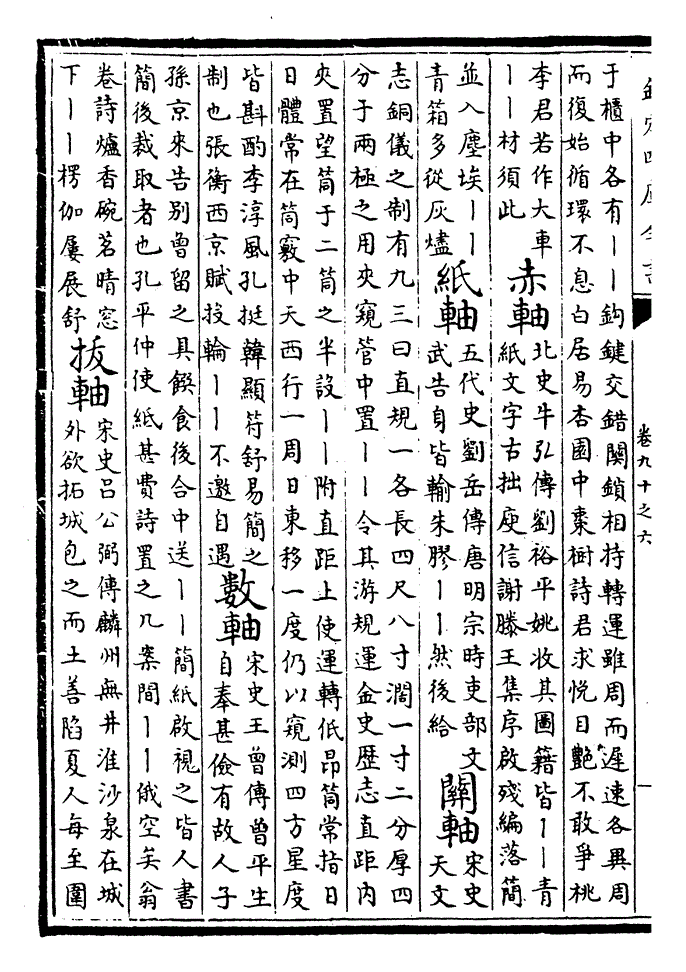 欽定四庫全書
卷九十之六
一
于櫃中各有丨丨鈎鍵交錯關鎖相持轉運雖周而遲速各異周
而復始循環不息白居易杏園中棗樹詩君求悅目艷不敢爭桃
李君若作大車
丨丨材須此
赤軸
北史牛弘傳劉裕平姚收其圖籍皆丨丨青
紙文字古拙庾信謝滕王集序啟殘編落簡
並入塵埃丨丨
青箱多從灰燼
紙軸
五代史劉岳傳唐明宗時吏部文
武告身皆輸朱膠丨丨然後給
關軸
宋史
天文
志銅儀之制有九三曰直規一各長四尺八寸濶一寸二分厚四
分于兩極之用夾窺管中置丨丨令其游規運金史歴志直距内
夾置望筒于二筒之半設丨丨附直距上使運轉低昂筒常指日
日體常在筒竅中天西行一周日東移一度仍以窺測四方星度
皆斟酌李淳風孔挺韓顯符舒易簡之
制也張衡西京賦投輪丨丨不邀自遇
數軸
宋史王曾傳曾平生
自奉甚儉有故人子
孫京來告别曾留之具饌食後合中送丨丨簡紙啟視之皆人書
簡後裁取者也孔平仲使紙甚費詩置之几案間丨丨俄空矣翁
卷詩爐香碗茗晴窓
下丨丨楞伽屢展舒
拔軸
宋史吕公弼傳麟州無井淮沙泉在城
外欲拓城包之而土善陷夏人每至圍